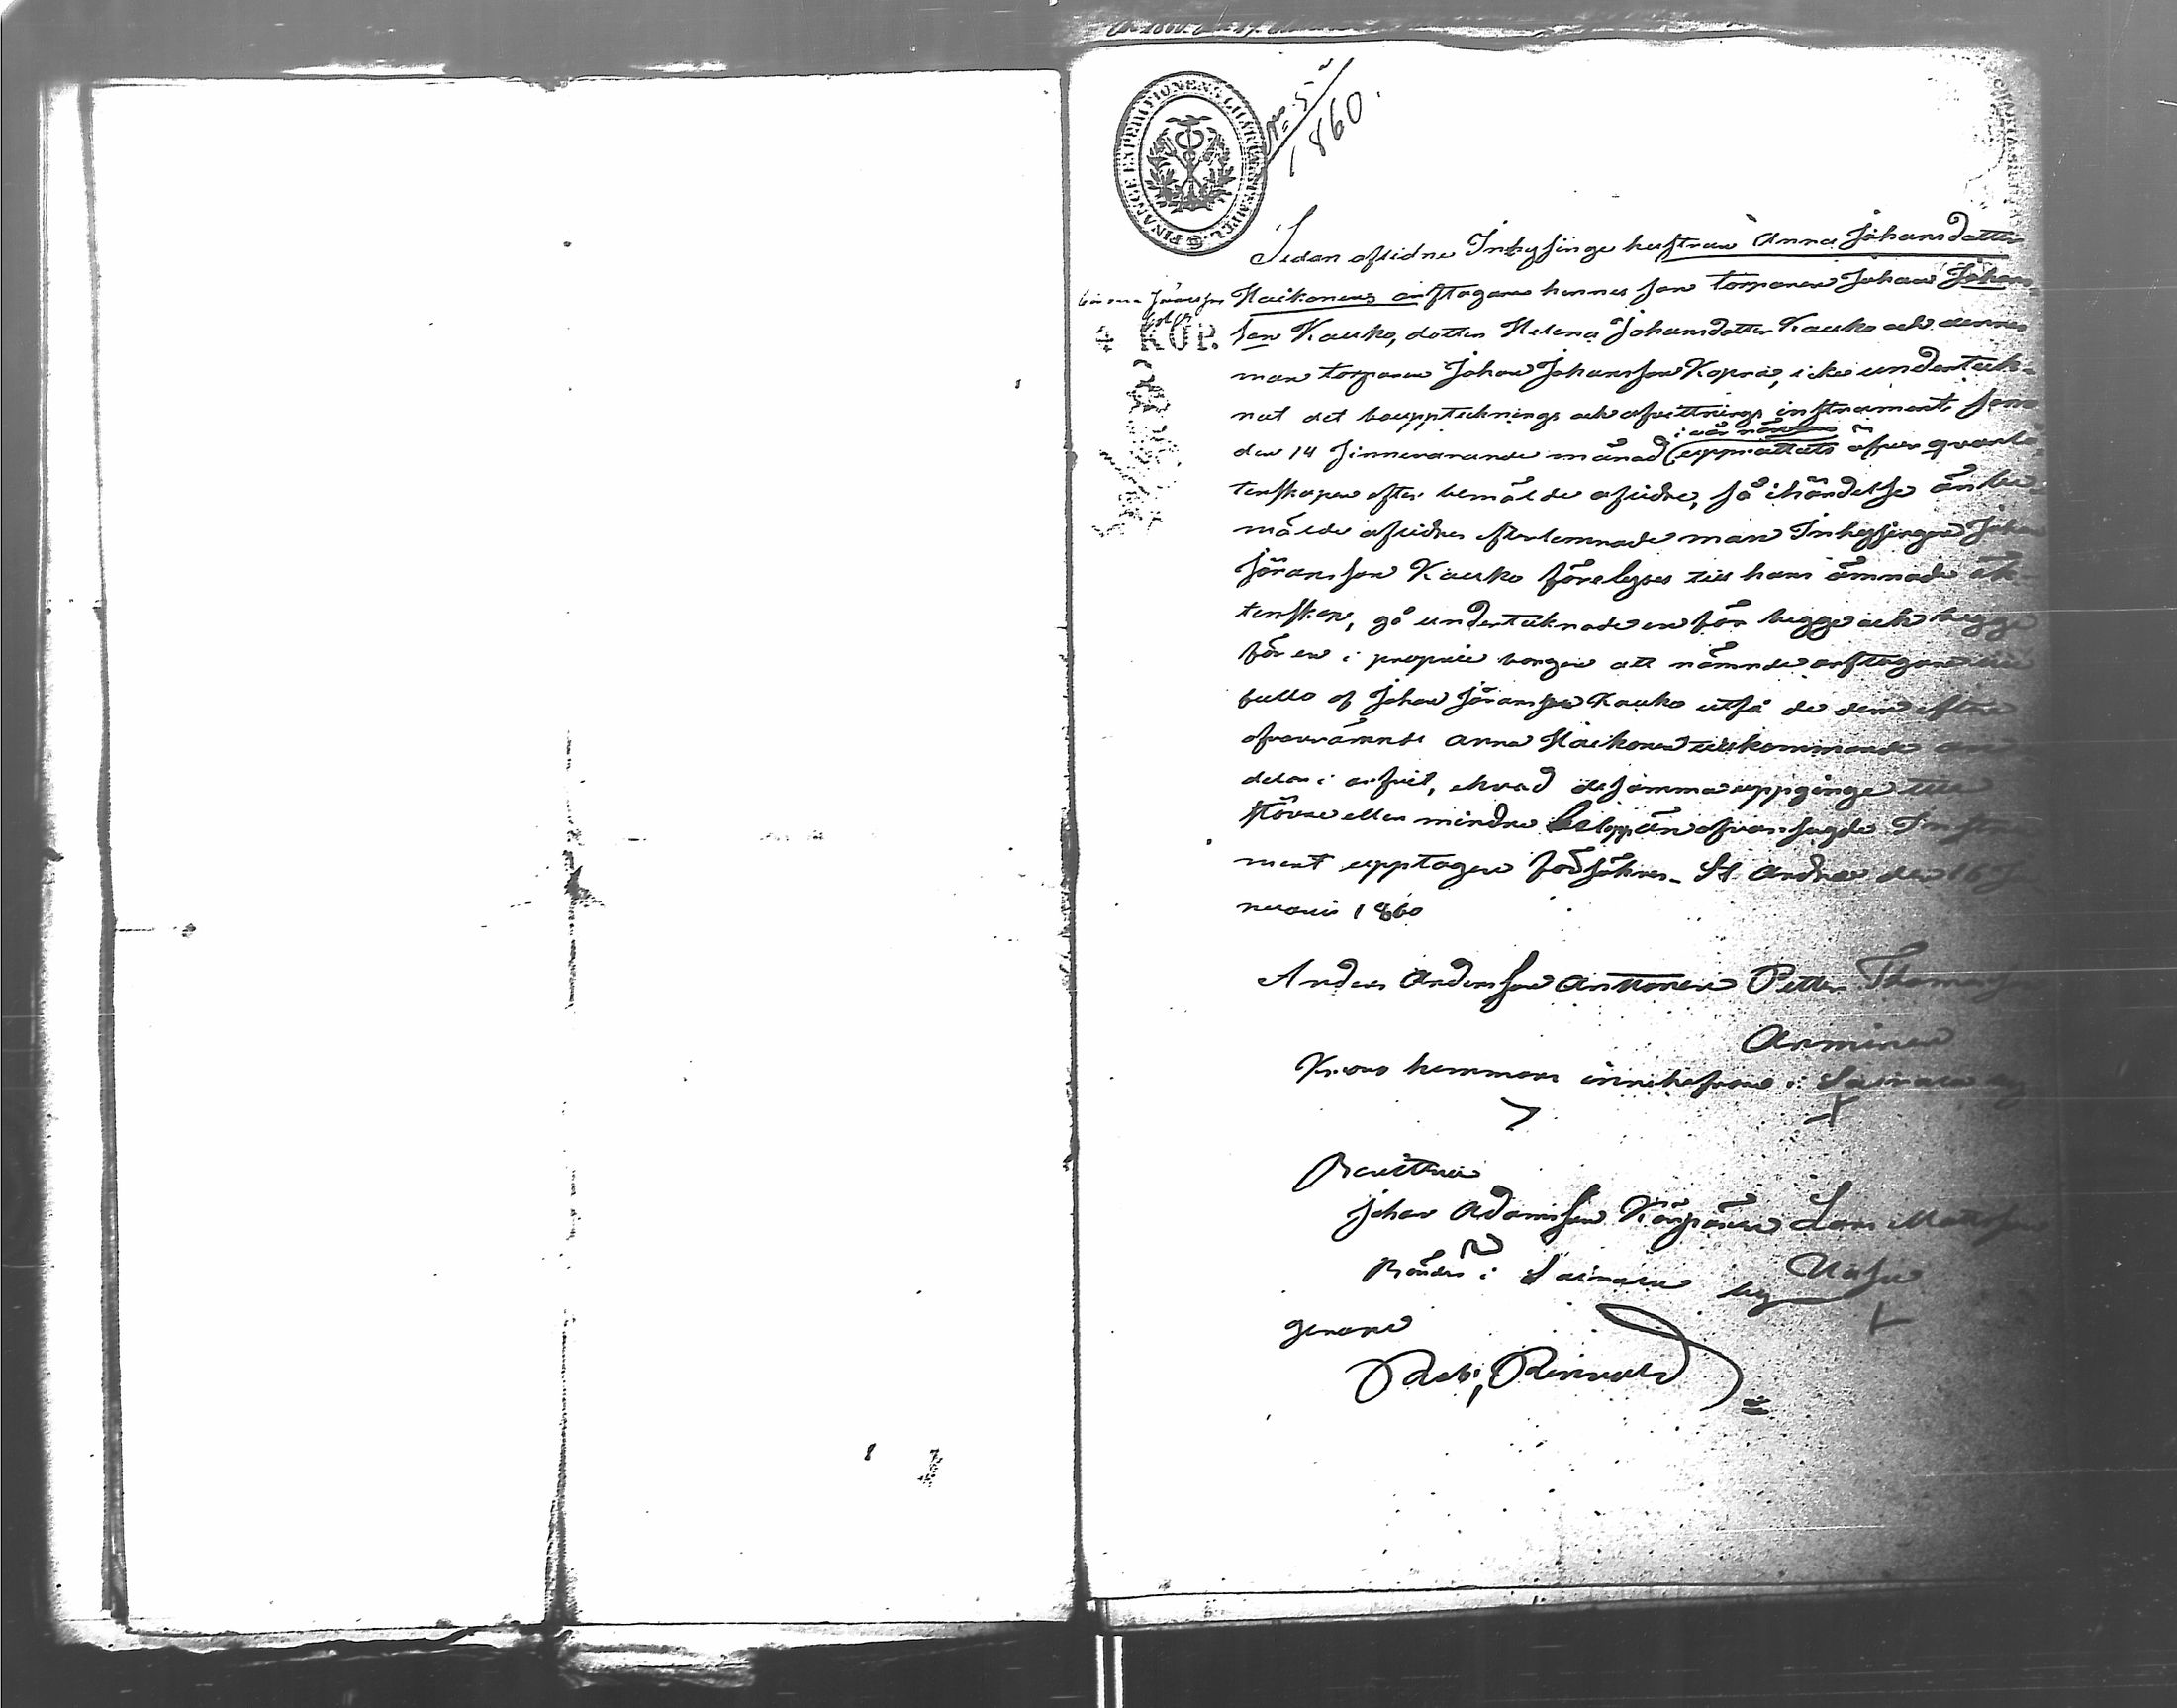 FINANCE EXPEDITIONENS CHARTÆ STEMPEL
1860.
Sedan aflidne Inhysinge hustrun Anna Johansdotter
Haikonens arftagare hennes son torparen Johan Johans-
4 KOP.
son Kauko, dotter Helena Johansdotter Kauko och dennes
man torparen Johan Johansson Kopra, icke underteck-
nat det bouppteknings och afvittrings instrument som
i vår närvaro
den 14 sinnevarande månad upprättats öfver qvarlå-
tenskapen efter bemälde aflidne, så i händelse än be-
mälde aflidnes efterlemnade man Inhysingen Johan
Jöransson Kauko förelyses till hans ämnade äk-
tenskap, gå undertecknade en för begge och begge
för en i proprie borgen att nämnde arftagare till
fullo af Johan Jöransson Kauko utfå de dem efter
ofvannämnde Anna Haikonen tillkommande an-
delar i arfvet, ehvad de samma uppginge till
större eller mindre belopp än ofvansagde Instru-
ment upptager försäkres. St Andreæ den 16 Ja-
nuarii 1860
Anders Andersson Anttonen Petter Thomasson
Arminen
Krono hemmans innehafvare i Sairala by
Bevittna
Johan Adamsson Lars Mattsson
Bönder i Sairala by
genom